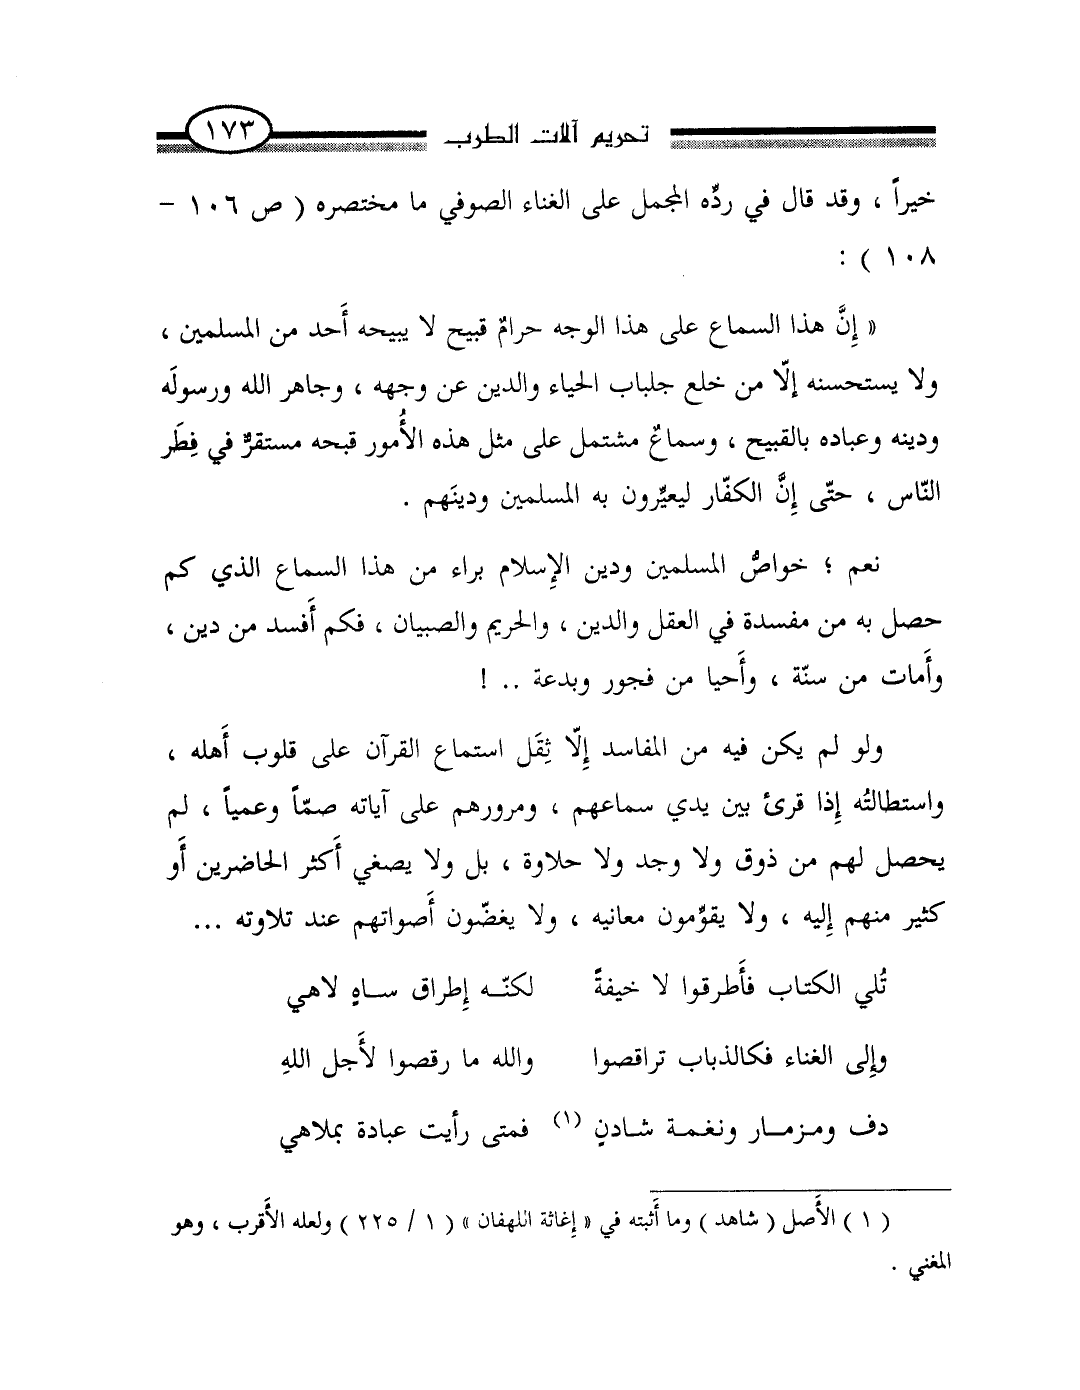 تحريم آلات الطرب ١٧٣
خيراً ، وقد قال في ردِّه المجمل على الغناء الصوفي ما مختصره ( ص ١٠٦ –
١٠٨ ) :
« إِنَّ هذا السماع على هذا الوجه حرامٌ قبيح لا يبيحه أَحد من المسلمين ،
ولا يستحسنه إلّا من خلع جلباب الحياء والدين عن وجهه ، وجاهر الله ورسولَه
ودينه وعباده بالقبيح ، وسماعٌ مشتمل على مثل هذه الأُمور قبحه مستقرٌّ في فِطَر
النّاس ، حتّى إِنَّ الكفّار ليعيِّرون به المسلمين ودينَهم .
نعم ؛ خواصُّ المسلمين ودين الإِسلام براء من هذا السماع الذي كم
حصل به من مفسدة في العقل والدين ، والحريم والصبيان ، فكم أَفسد من دين ،
وأَمات من سنّة ، وأَحيا من فجور وبدعة .. !
ولو لم يكن فيه من المفاسد إِلّا ثِقَل استماع القرآن على قلوب أَهله ،
واستطالتُه إِذا قرئ بين يدي سماعهم ، ومرورهم على آياته صمّاً وعمياً ، لم
يحصل لهم من ذوق ولا وجد ولا حلاوة ، بل ولا يصغي أَكثر الحاضرين أَو
كثير منهم إِليه ، ولا يقوِّمون معانيه ، ولا يغضّون أَصواتهم عند تلاوته ...
تُلي الكتاب فأَطرقوا لا خيفةً لكنّــه إِطراق ســاهٍ لاهي
وإِلى الغناء فكالذباب تراقصوا والله ما رقصوا لأَجل اللهِ
دف ومـزمــار ونغمـة شـادنٍ (١) فمتى رأيت عبادة بملاهي
( ١ ) الأَصل ( شاهد ) وما أَثبته في « إِغاثة اللهفان » ( ١ / ٢٢٥ ) ولعله الأَقرب ، وهو
المغني .